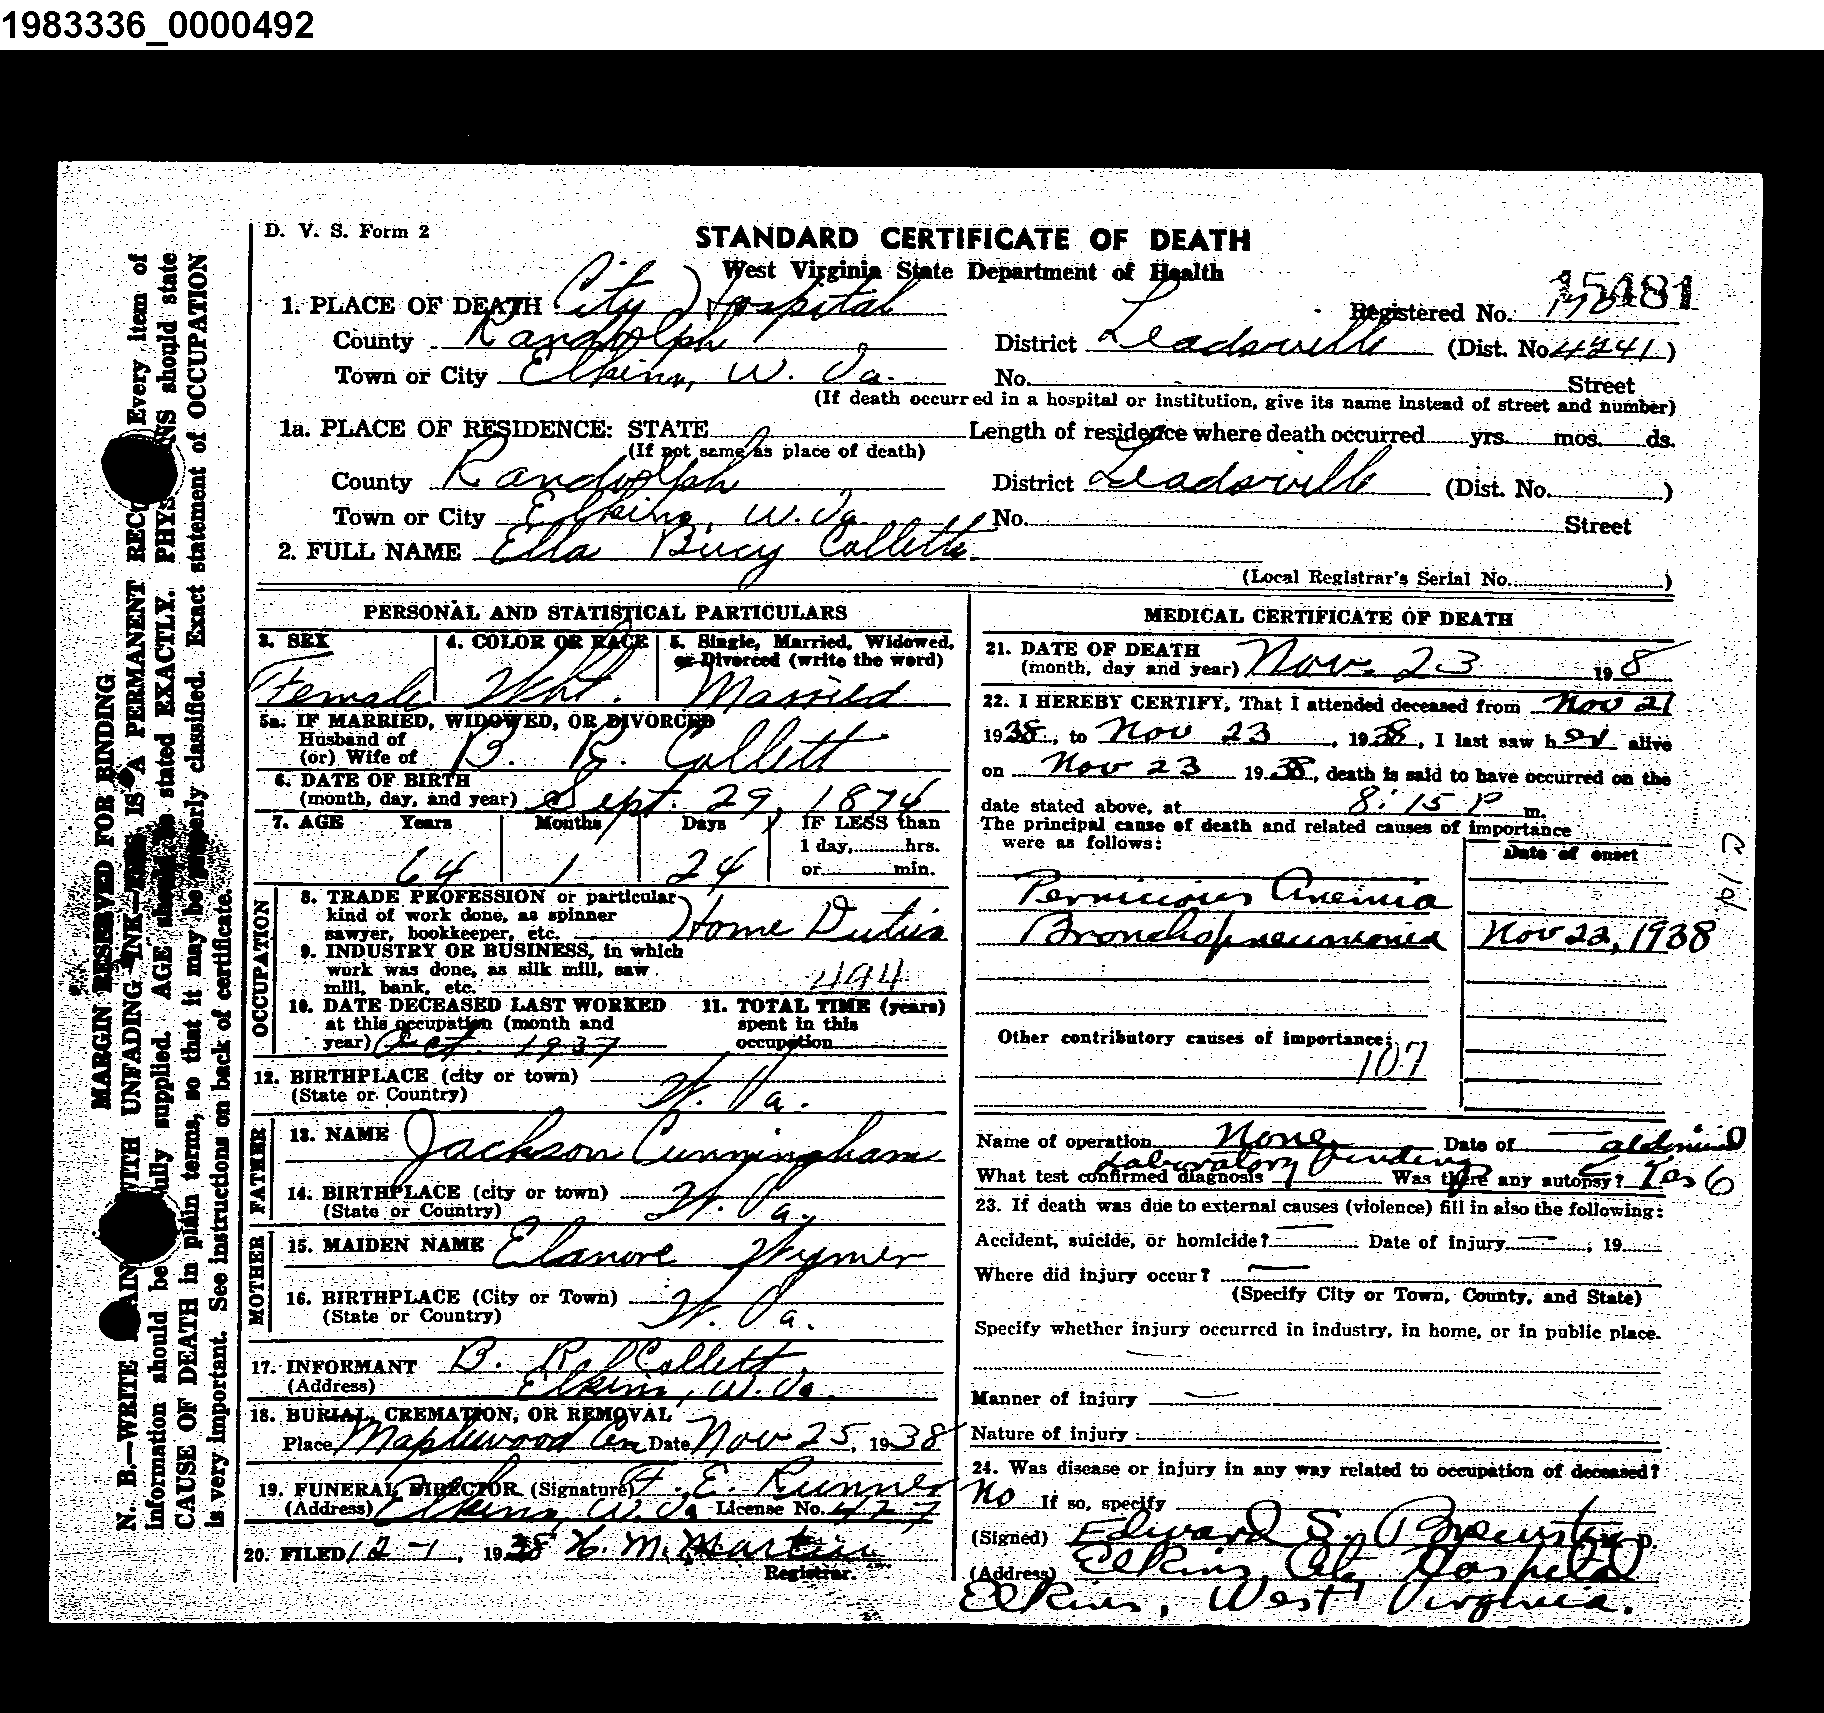 1983336_0000492
D. V. S. Form 2
STANDARD CERTIFICATE OF DEATH
West Virginia State Department of Health
15481
1. PLACE OF DEATH City Hospital Registered No. 170
County Randolph District Leadsville (Dist. No. 4241)
Town or City Elkins, W. Va. No. Street
(If death occurred in a hospital or institution, give its name instead of street and number)
1a. PLACE OF RESIDENCE: STATE Length of residence where death occurred yrs. mos. ds.
(If not same as place of death)
County Randolph District Leadsville (Dist. No. )
Town or City Elkins, W. Va. No. Street
2. FULL NAME Ella Bucy Collette
(Local Registrar's Serial No. )
PERSONAL AND STATISTICAL PARTICULARS
3. SEX 4. COLOR OR RACE 5. Single, Married, Widowed,
or Divorced (write the word)
Female Wht. Married
5a. IF MARRIED, WIDOWED, OR DIVORCED
Husband of
(or) Wife of B. R. Collett
6. DATE OF BIRTH
(month, day, and year) Sept. 29, 1874
7. AGE Years Months Days IF LESS than
1 day, hrs.
64 1 24 or min.
OCCUPATION
8. TRADE PROFESSION or particular
kind of work done, as spinner
sawyer, bookkeeper, etc. Home Duties
9. INDUSTRY OR BUSINESS, in which
work was done, as silk mill, saw
mill, bank, etc. 494
10. DATE DECEASED LAST WORKED 11. TOTAL TIME (years)
at this occupation (month and spent in this
year) Oct. 1937 occupation
12. BIRTHPLACE (city or town)
(State or Country) W. Va.
FATHER
13. NAME Jackson Cunningham
14. BIRTHPLACE (city or town)
(State or Country) W. Va.
MOTHER
15. MAIDEN NAME Elanore Wymer
16. BIRTHPLACE (City or Town)
(State or Country) W. Va.
17. INFORMANT B. R. Collett
(Address) Elkins, W. Va.
18. BURIAL, CREMATION, OR REMOVAL
Place Maplewood Cem Date Nov 25, 1938
19. FUNERAL DIRECTOR (Signature) F. E. Runner
(Address) Elkins, W. Va License No. 427
20. FILED 12-1, 1938 H. M. Martin
Registrar.
MEDICAL CERTIFICATE OF DEATH
21. DATE OF DEATH
(month, day and year) Nov. 23 198
22. I HEREBY CERTIFY, That I attended deceased from Nov 21
1938, to Nov 23, 1938, I last saw her alive
on Nov 23 1938, death is said to have occurred on the
date stated above, at 8:15 P m.
The principal cause of death and related causes of importance
were as follows: Date of onset
Pernicious Anemia
Bronchopneumonia Nov 22, 1938
Other contributory causes of importance:
107
Name of operation None Date of
What test confirmed diagnosis Laboratory findings Was there any autopsy? Yes
23. If death was due to external causes (violence) fill in also the following:
Accident, suicide, or homicide? Date of injury , 19
Where did injury occur?
(Specify City or Town, County, and State)
Specify whether injury occurred in industry, in home, or in public place.
Manner of injury
Nature of injury
24. Was disease or injury in any way related to occupation of deceased?
No If so, specify
(Signed) Edward S. Brewster
(Address) Elkins City Hospital
Elkins, West Virginia.
MARGIN RESERVED FOR BINDING
N. B.—WRITE WITH UNFADING INK IS A PERMANENT Every item of
information should be fully supplied. AGE stated EXACTLY. should state
CAUSE OF DEATH in plain terms, so that it may be properly classified. Exact statement of OCCUPATION
is very important. See instructions on back of certificate.